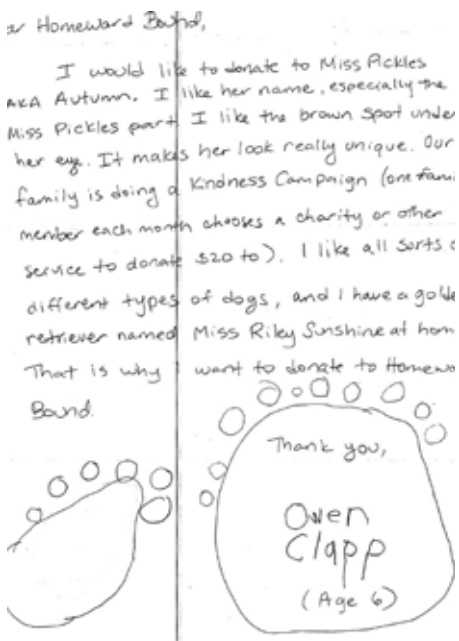 er Homeward Bound,
I would like to donate to Miss Pickles
AKA Autumn. I like her name, especially the
Miss Pickles part. I like the brown spot under
her eye. It makes her look really unique. Our
family is doing a Kindness Campaign (one fami
member each month chooses a charity or other
service to donate $20 to). I like all sorts o
different types of dogs, and I have a golde
retriever named Miss Riley Sunshine at hom
That is why I want to donate to Homewa
Bound.
Thank you,
Owen
Clapp
(Age 6)